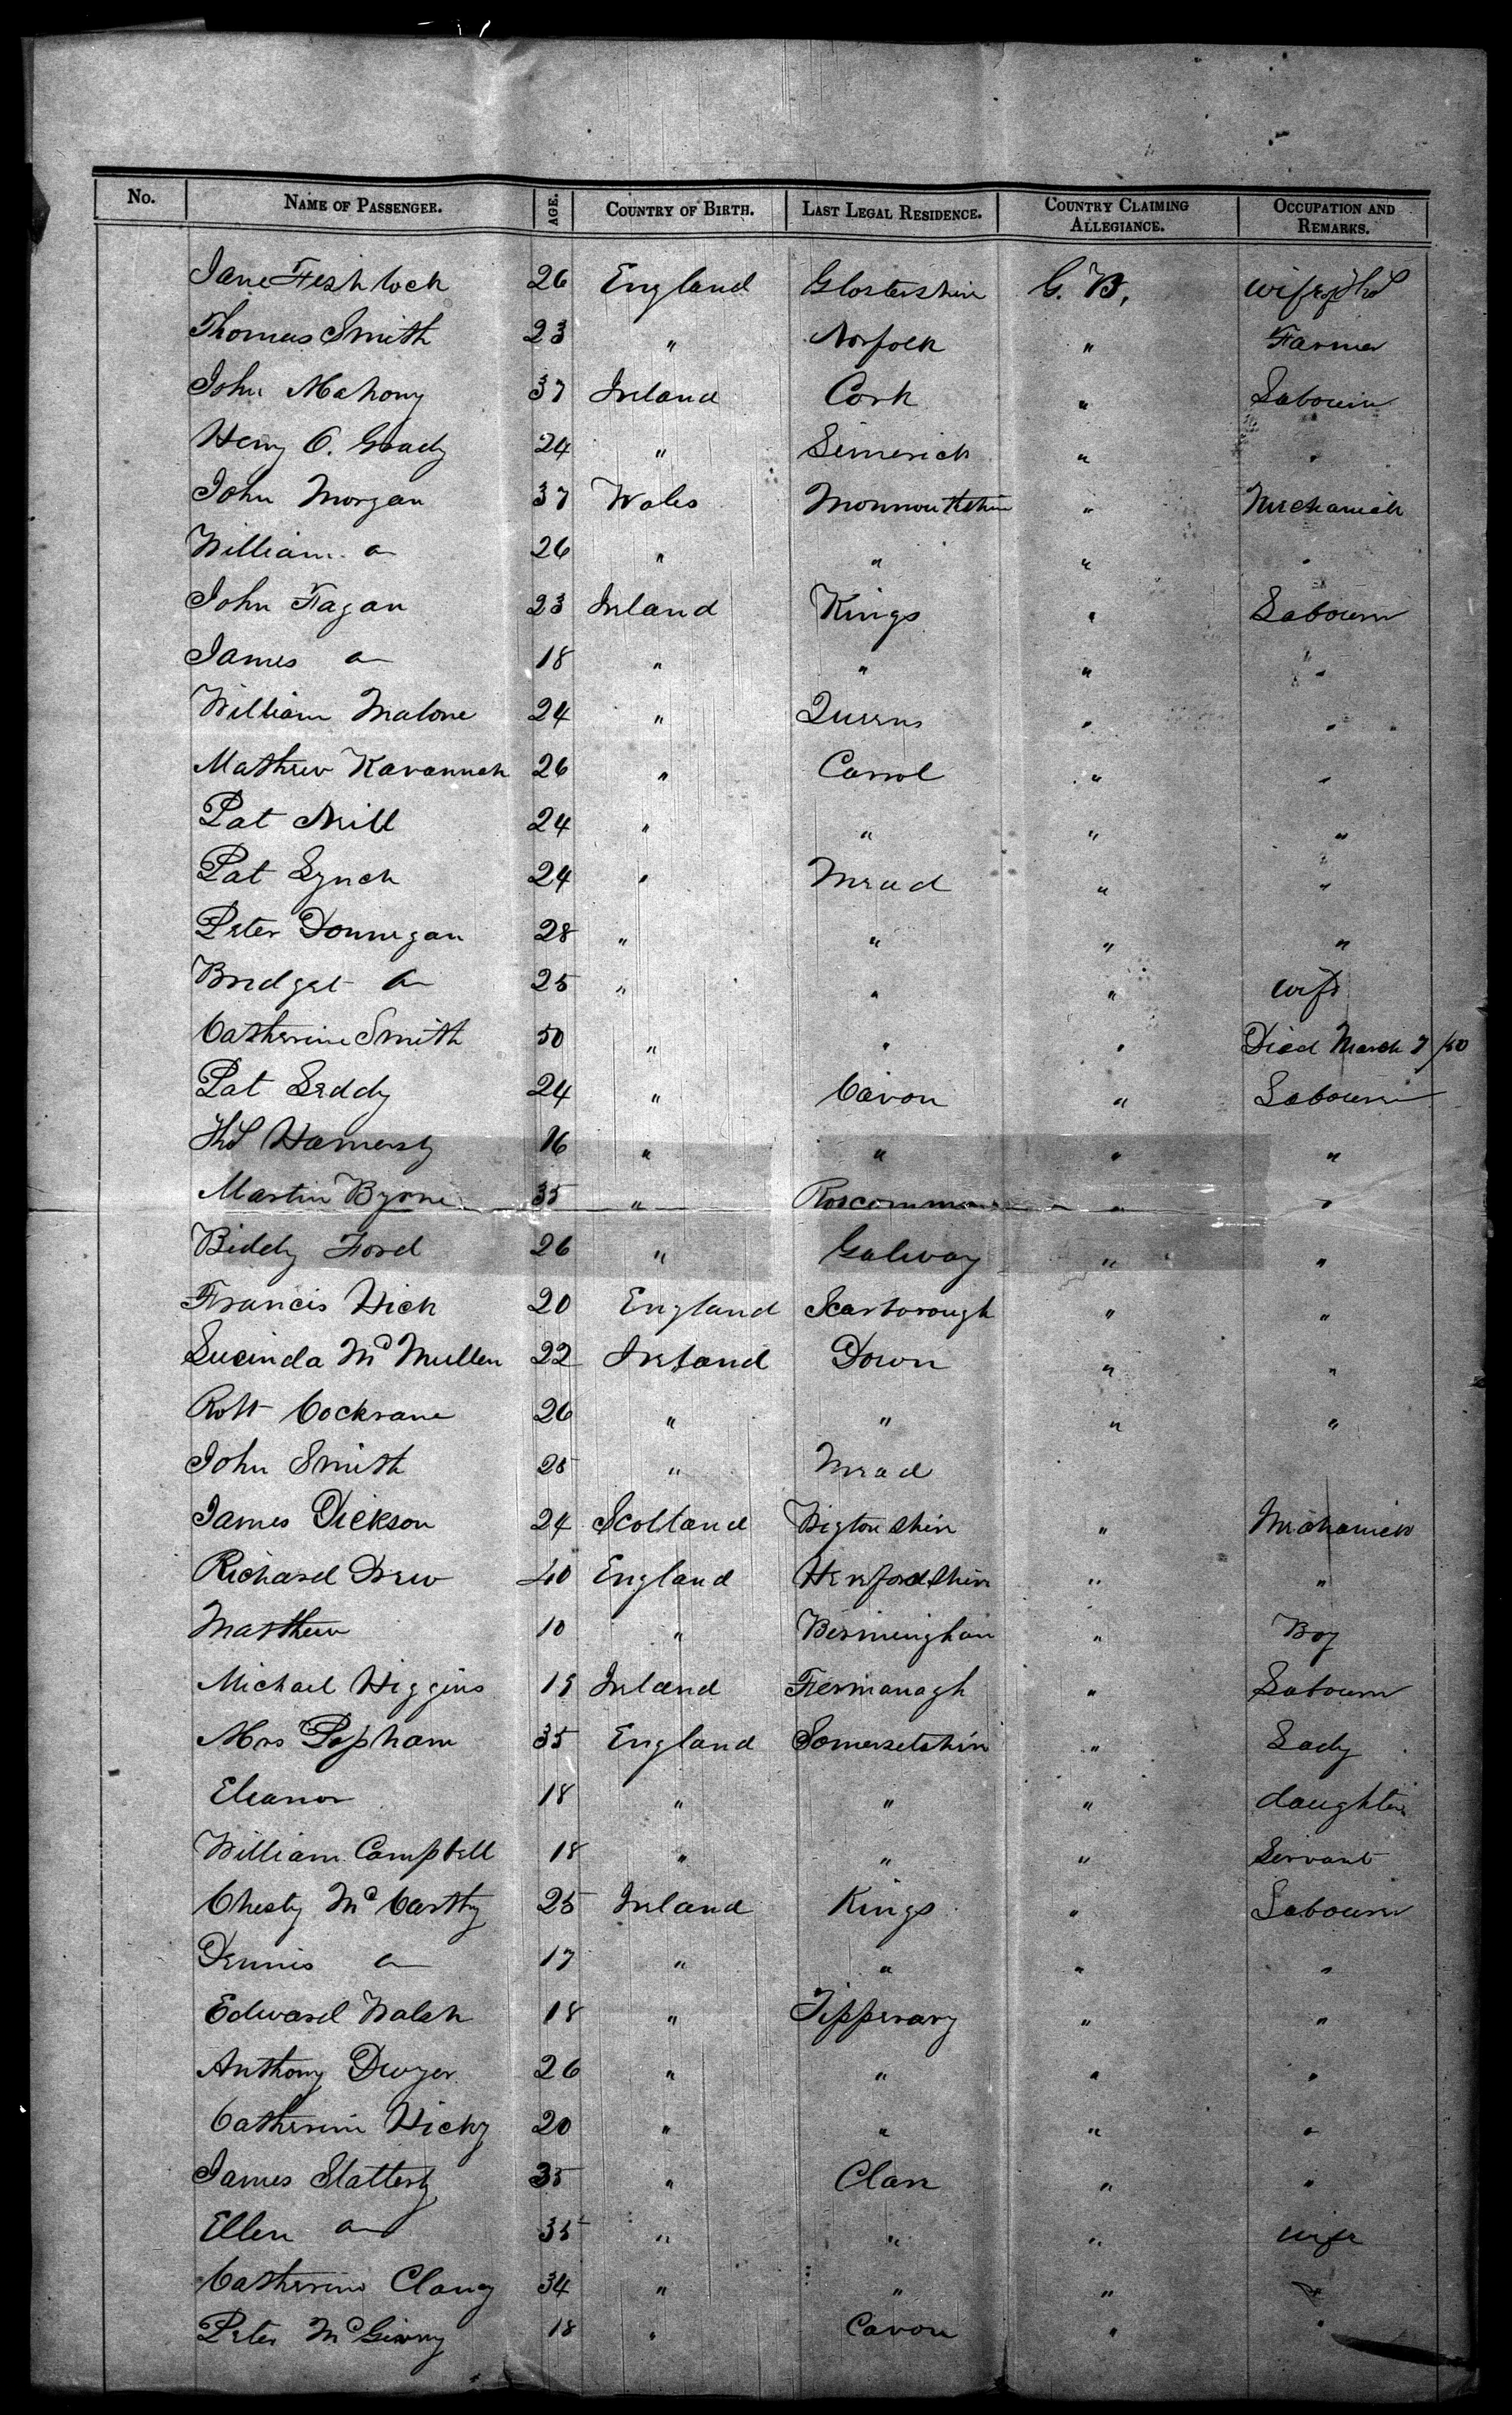 No. NAME OF PASSENGER. AGE. COUNTRY OF BIRTH. LAST LEGAL RESIDENCE. COUNTRY CLAIMING ALLEGIANCE. OCCUPATION AND REMARKS.
Jane 26 England Glostershire G. B. wife of Thos
Thomas Smith 23 " Norfolk " Farmer
John Mahony 37 Ireland Cork " Labourer
Henry O. Grady 24 " Limerick " "
John Morgan 37 Wales Monmouthshire " Mechanick
William 26 " " " "
John Fagan 23 Ireland Kings " Labourer
James 18 " " " "
William Malone 24 " Queens " "
Mathew Kavannah 26 " Carrol " "
Pat Neill 24 " " " "
Pat Lynch 24 " Mead " "
Peter Donnegan 28 " " " "
Bridget 25 " " " wife
Catherine Smith 50 " " " Died March 7/50
Pat Leddy 24 " Cavon " Labourer
Thos Hamersly 16 " " " "
Martin Byrne 35 " Roscommon " "
Biddy Ford 26 " Galway " "
Francis Hick 20 England Scarborough " "
Lucinda Mc Mullen 22 Ireland Down " "
Robt Cockrane 26 " " " "
John Smith 25 " Mead
James Dickson 24 Scotland Wigtonshire " Mechanick
Richard Drew 40 England Herefordshire " "
Matthew 10 " Birmingham " Boy
Michael Higgins 19 Ireland Fermanagh " Labourer
Mrs Popham 35 England Somersetshire " Lady
Eleanor 18 " " " daughter
William Campbell 18 " " " Servant
Chesty Mc Carthy 25 Ireland Kings " Labourer
Dennis 17 " " " "
Edward Walsh 18 " Tipperary " "
Anthony Dwyer 26 " " " "
Catherine Hicky 20 " " " "
James Slattery 35 " Clare " "
Ellen 35 " " " wife
Catherine Clancy 34 " " " "
Peter Mc Ginny 18 " Cavon " "